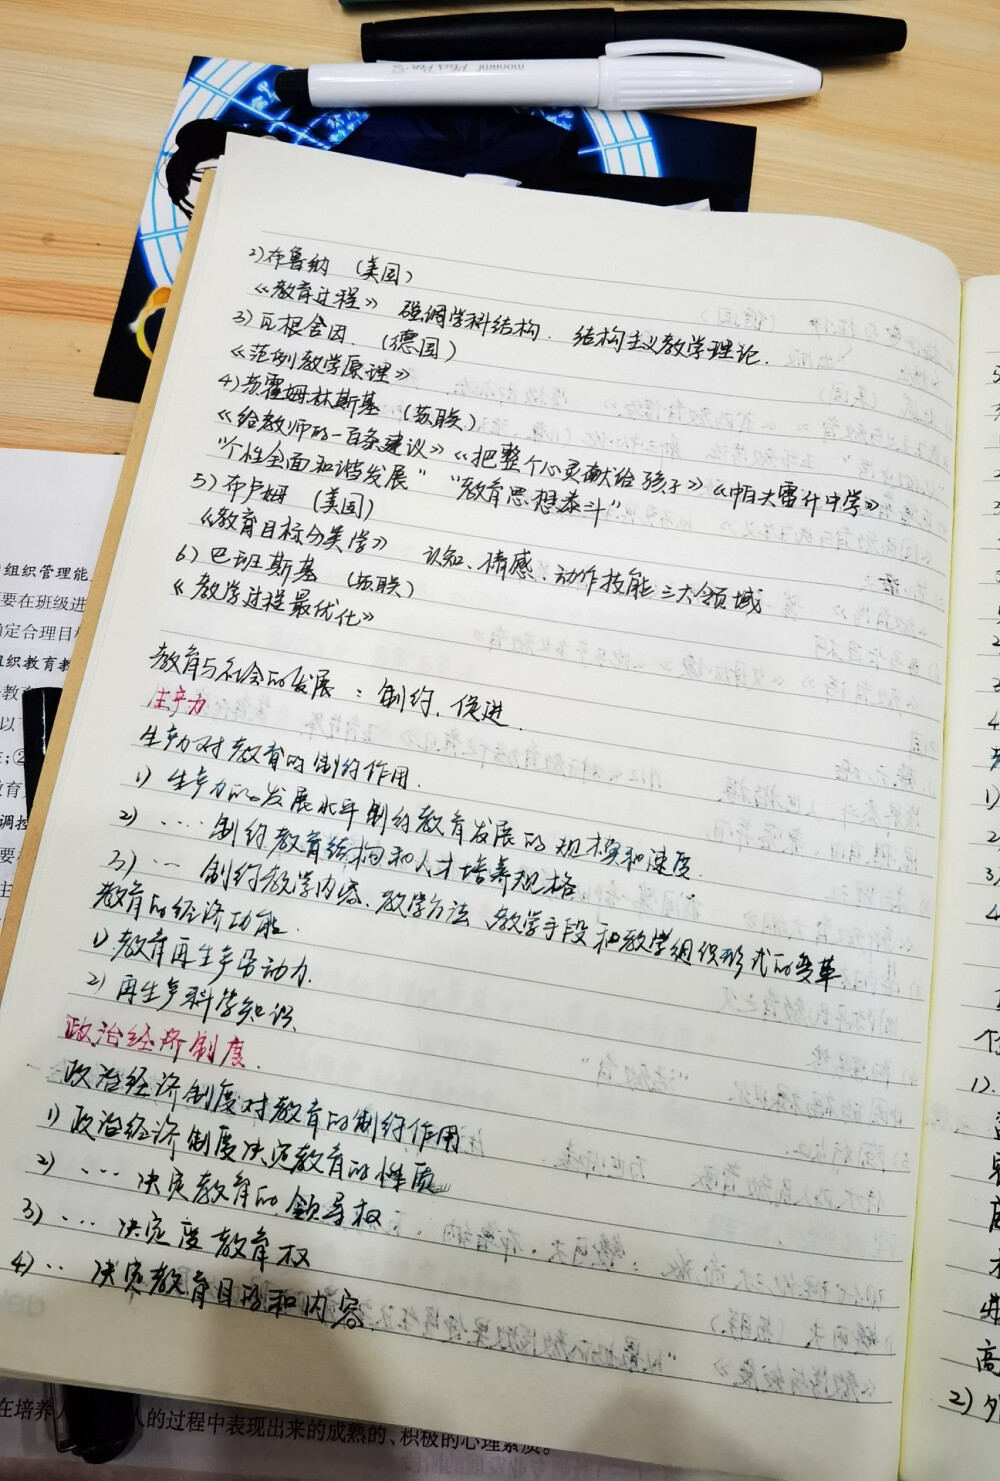 monami Plus Pen-S
2)布鲁纳 (美国)
《教育过程》 强调学科结构. 结构主义教学理论.
3)瓦根舍因. (德国)
《范例教学原理》
4)苏霍姆林斯基 (苏联)
《给教师的一百条建议》《把整个心灵献给孩子》《帕夫雷什中学》
"个性全面和谐发展" "教育思想泰斗"
5)布卢姆 (美国)
《教育目标分类学》 认知、情感、动作技能三大领域
6)巴班斯基 (苏联)
《教学过程最优化》
教育与社会的发展:制约,促进.
生产力
生产力对教育的制约作用.
1)生产力的发展水平制约教育发展的规模和速度.
2)....制约教育结构和人才培养规格
3)... 制约教学内容、教学方法、教学手段和教学组织形式的变革
教育的经济功能.
1)教育再生产劳动力.
2)再生产科学知识
政治经济制度.
政治经济制度对教育的制约作用
1)政治经济制度决定教育的性质
2)... 决定教育的领导权
3)... 决定受教育权
4).. 决定教育目的和内容
组织管理能
要在班级进
确定合理目标
组织教育教
在培养人
人的过程中表现出来的成熟的、积极的心理素质。